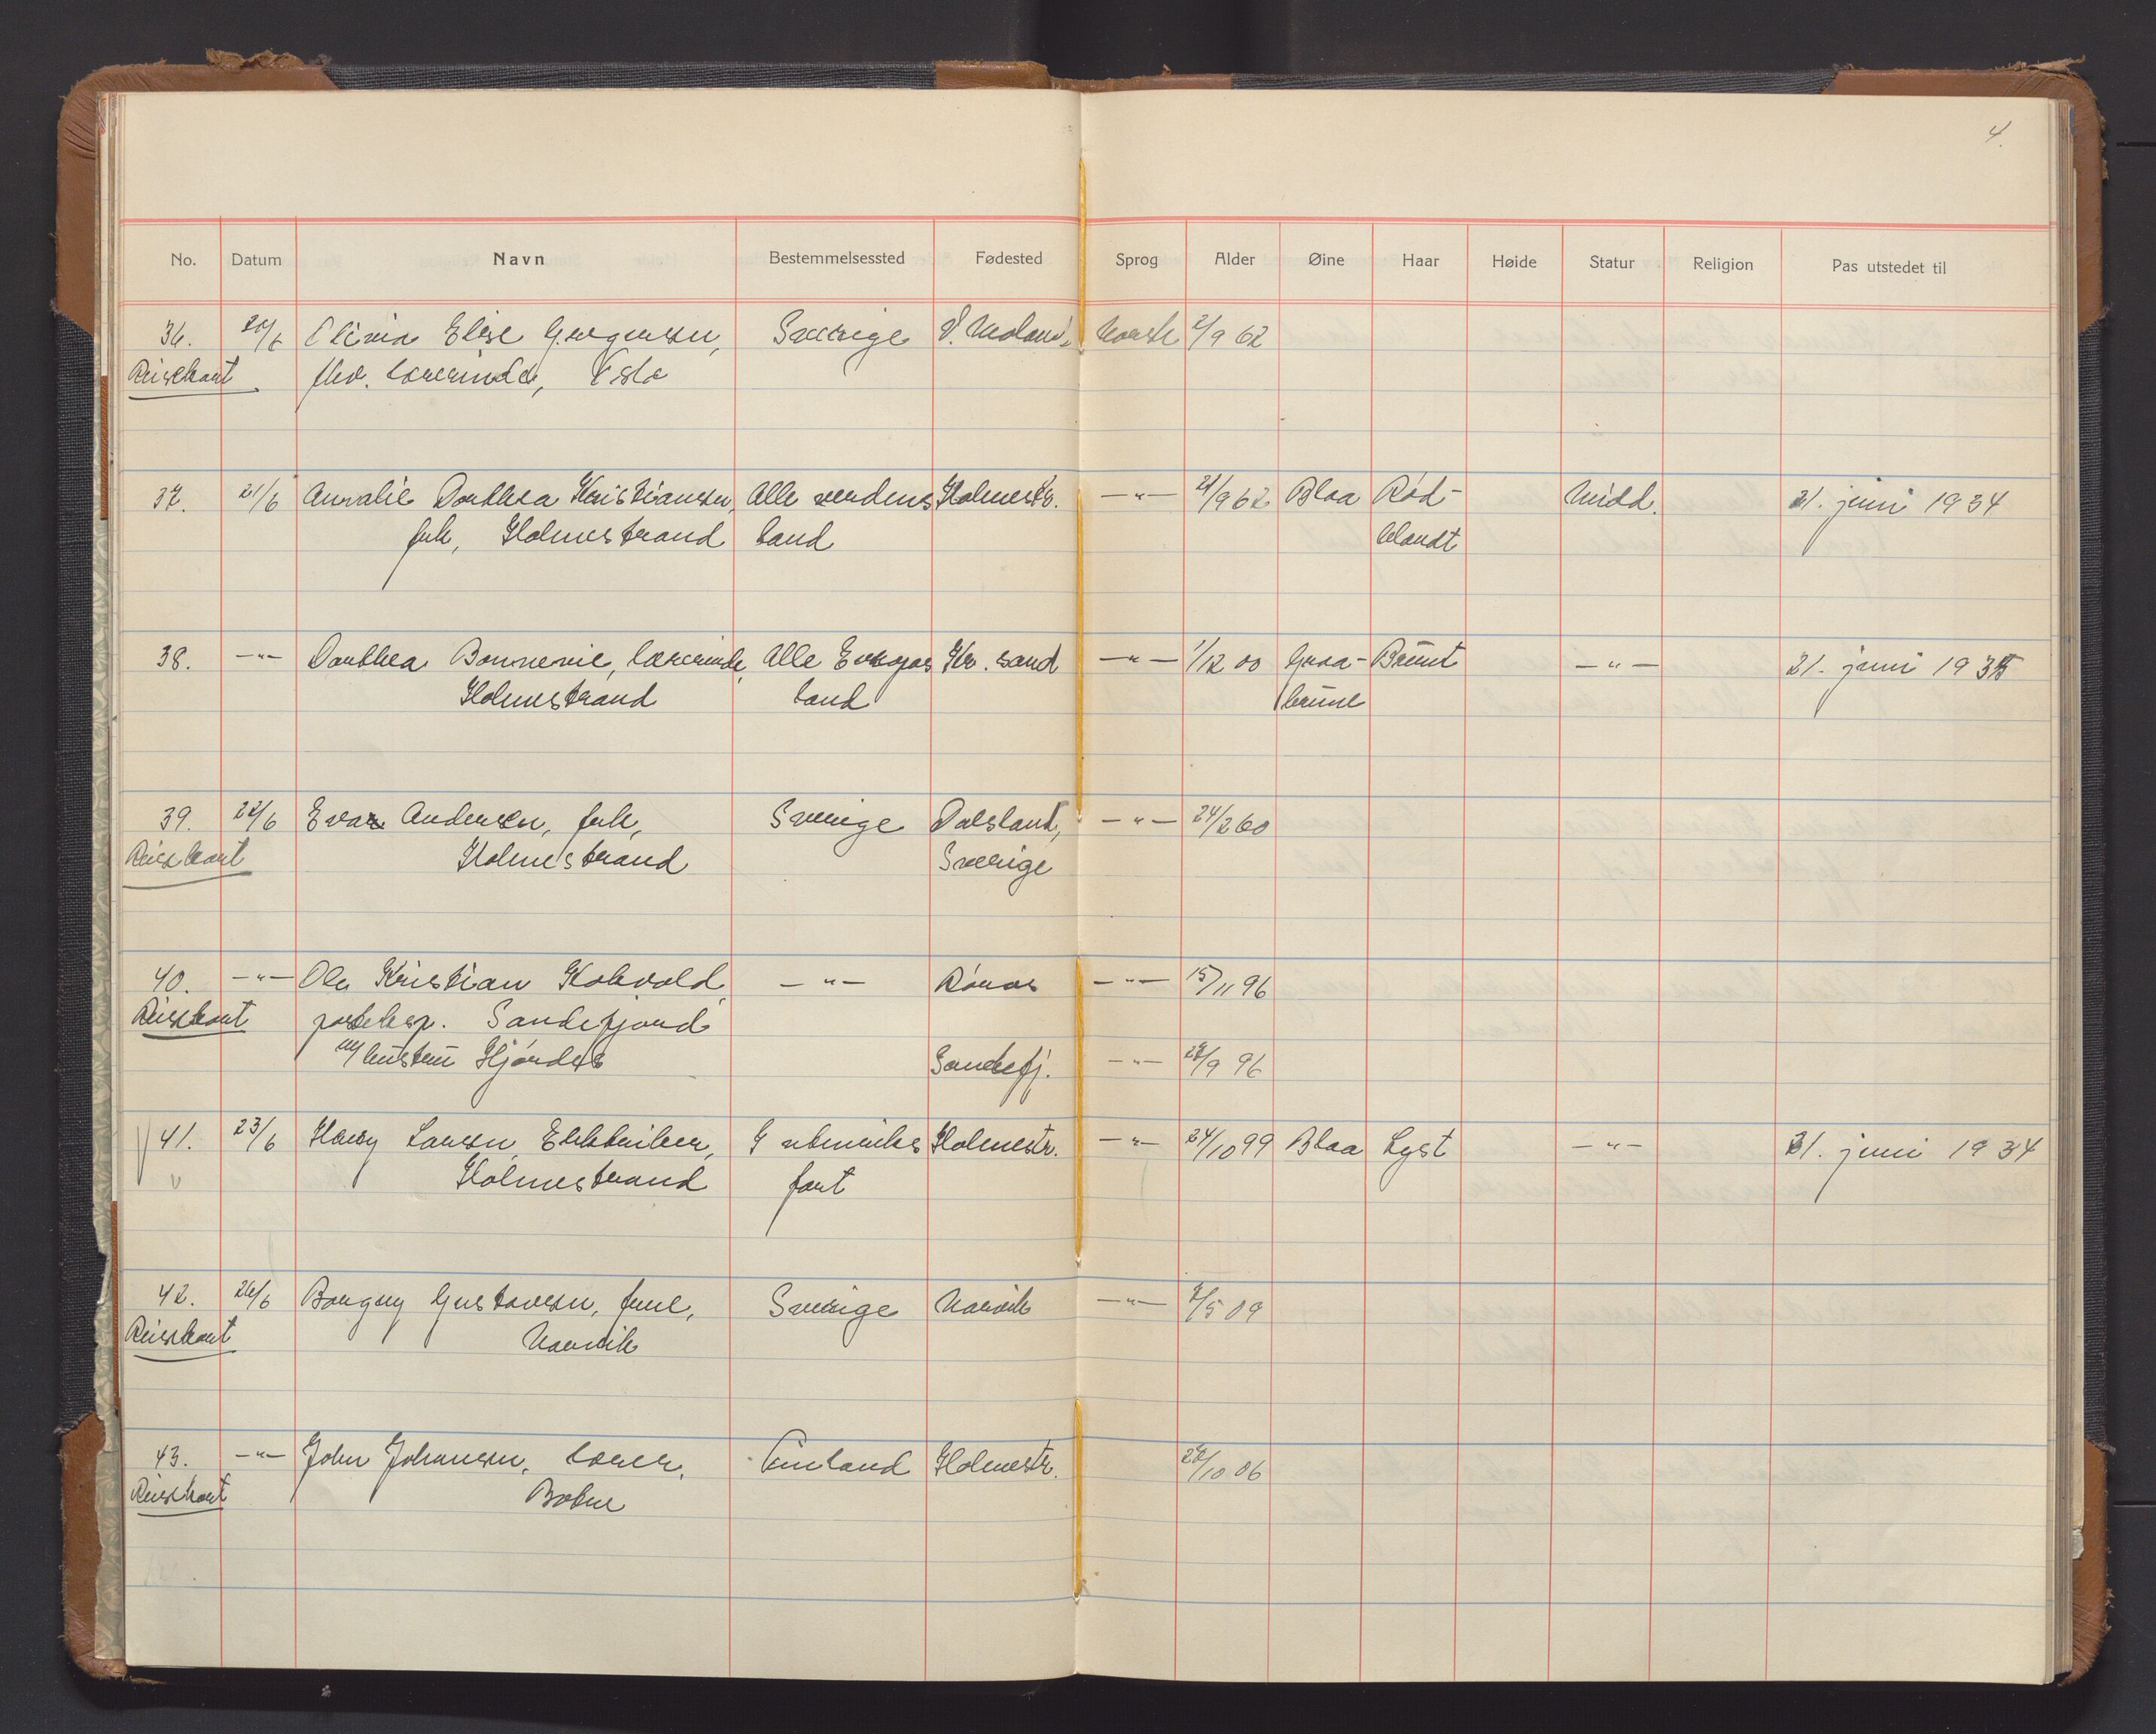 4.
No. Datum Navn Bestemmelsessted Fødested Sprog Alder Øine Haar Høide Statur Religion Pas utstedet til
36. 20/6 Olivia Elise Gregersen, Sverige Ø. Moland, Norsk 2/9 62
Reisekort fhv. lærerinde, Oslo
37. 21/6 Annalie Dorthea Kristiansen, Alle verdens Holmestr. —"— 21/9 62 Blaa Rød- Midd. 21. juni 1934
frk, Holmestrand land blandt
38. —"— Dorthea Bonnevie, lærerinde, Alle Europas Kr.sand —"— 1/12 00 Graa- Brunt —"— 21. juni 1935
Holmestrand land brune
39. 22/6 Eva Andersen, frk, Sverige Dalsland, —"— 24/2 60
Reisekort Holmestrand Sverige
40. —"— Ole Kristian Kokvold, —"— Röros —"— 15/11 96
Reisekort posteksp. Sandefjord
m/hustru Hjördis Sandefj. —"— 28/9 96
41. 23/6 Harry Larsen, Elektriker, I utenriks Holmestr. —"— 24/10 99 Blaa Lyst —"— 21. juni 1934
Holmestrand fart
42. 26/6 Borgny Gustavsen, frue, Sverige Narvik —"— 8/5 09
Reisekort Narvik
43. —"— John Johansen, lærer, Finland Holmestr. 28/10 06
Reisekort Botne